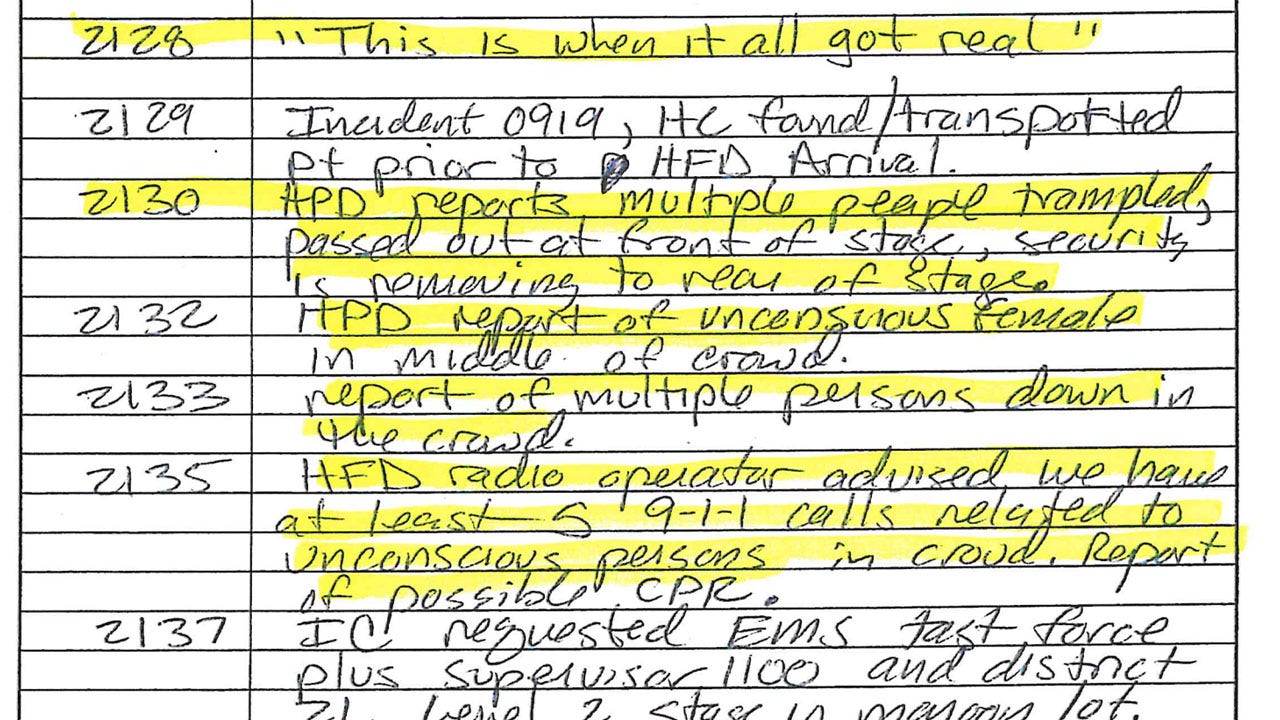 2128 "This is when it all got real"
2129 Incident 0919, HC found/transported
pt prior to HFD Arrival.
2130 HPD reports multiple people trampled,
passed out at front of stage, security
is removing to rear of stage.
2132 HPD report of unconsuious female
in middle of crowd.
2133 report of multiple persons down in
the crowd.
2135 HFD radio operator advised we have
at least 5 9-1-1 calls related to
unconscious persons in croud. Report
of possible CPR.
2137 IC requested EMS task force
plus supervisor 1100 and district
21. Level 2 stage in maroon lot.